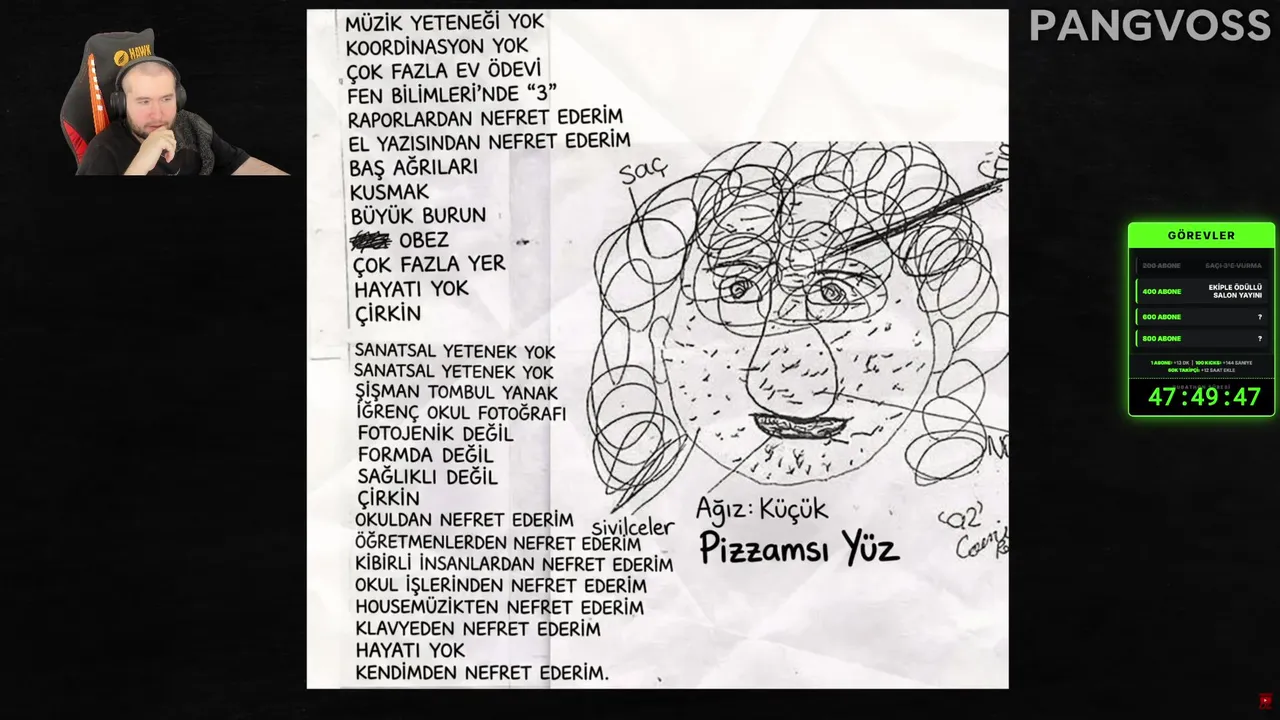 PANGVOSS
HAWK
MÜZİK YETENEĞİ YOK
KOORDİNASYON YOK
ÇOK FAZLA EV ÖDEVİ
FEN BİLİMLERİ’NDE “3”
RAPORLARDAN NEFRET EDERİM
EL YAZISINDAN NEFRET EDERİM
BAŞ AĞRILARI
KUSMAK
BÜYÜK BURUN
OBEZ
ÇOK FAZLA YER
HAYATI YOK
ÇİRKİN
SANATSAL YETENEK YOK
SANATSAL YETENEK YOK
ŞİŞMAN TOMBUL YANAK
İĞRENÇ OKUL FOTOĞRAFI
FOTOJENİK DEĞİL
FORMDA DEĞİL
SAĞLIKLI DEĞİL
ÇİRKİN
OKULDAN NEFRET EDERİM
ÖĞRETMENLERDEN NEFRET EDERİM
KİBİRLİ İNSANLARDAN NEFRET EDERİM
OKUL İŞLERİNDEN NEFRET EDERİM
HOUSEMÜZİKTEN NEFRET EDERİM
KLAVYEDEN NEFRET EDERİM
HAYATI YOK
KENDİMDEN NEFRET EDERİM.
saç
sivilceler
Ağız: Küçük
Pizzamsı Yüz
GÖREVLER
200 ABONE SAÇI 3'E VURMA
400 ABONE EKİPLE ÖDÜLLÜ
SALON YAYINI
600 ABONE ?
800 ABONE ?
47:49:47